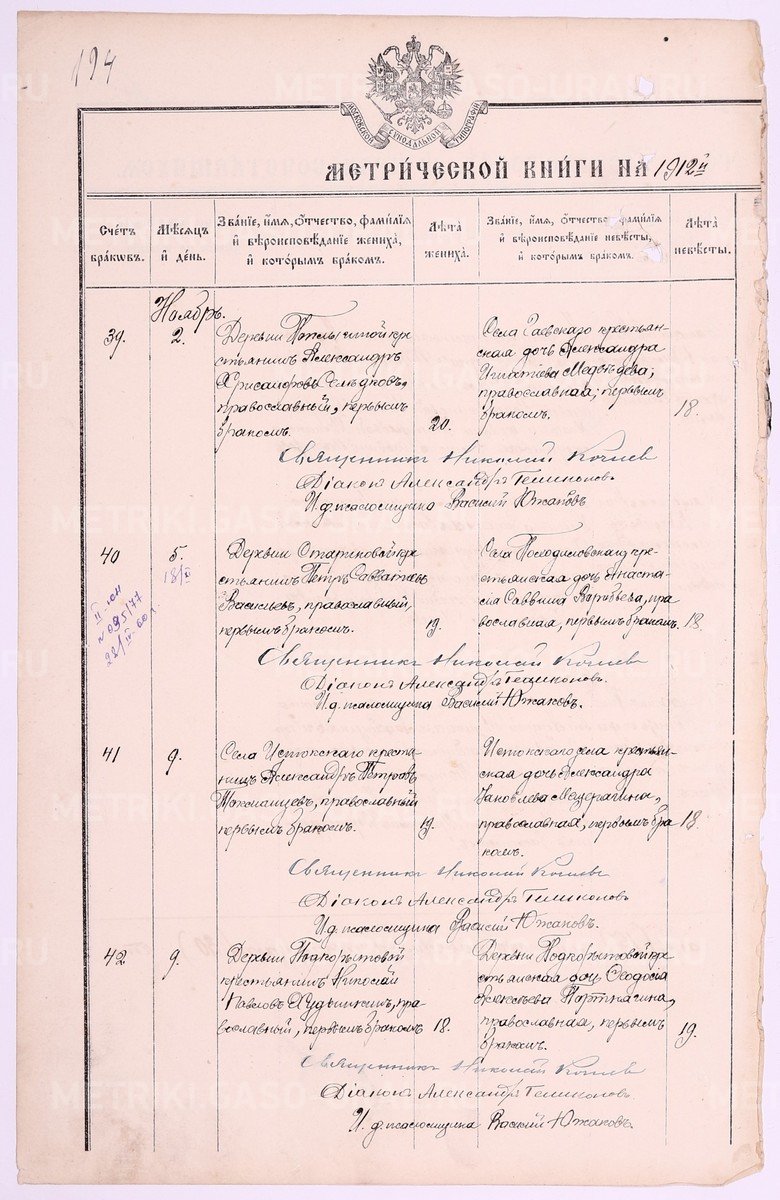 194
МОСКОВСКОЙ СѴНОДАЛЬНОЙ ТИПОГРАФІИ
МЕТРИ́ЧЕСКОЙ КНИ́ГИ НА 1912й
Сче́тъ бра́кωвъ.
Мѣ́сяцъ и҆ де́нь.
Зва́нїе, и҆́мя, ѻ҆́тчество, фами́лїя и҆ вѣроисповѣ́данїе жениха̀, и҆ кото́рымъ бра́комъ.
Лѣ́та жениха̀.
Зва́нїе, и҆́мя, ѻ҆́тчество, фами́лїя и҆ вѣроисповѣ́данїе невѣ́сты, и҆ кото́рымъ бра́комъ.
Лѣ́та невѣ́сты.
Ноябрь.
39.
2.
Деревни
крестьянинъ Александръ
православный, первымъ
бракомъ.
20.
Села Гаевскаго крестьян-
ская дочь Александра
Игнатіева Медвѣдева,
православная, первымъ
бракомъ.
18.
Священникъ Николай
Діаконъ Александръ
И. д. псаломщика Василій Южаковъ
40
5.
18/
II
60 г.
Деревни кре-
стьянинъ Петръ Савватіевъ
Васильевъ, православный,
первымъ бракомъ.
19.
Села кре-
стьянская дочь Анаста-
сія Саввина Воробьева, пра-
вославная, первымъ бракомъ.
18.
Священникъ Николай
Діаконъ Александръ
И. д. псаломщика Василій Южаковъ.
41
9.
Села Истокскаго кресть-
янинъ Александръ Петровъ
православный
первымъ бракомъ.
19.
Истокскаго села крестьян-
ская дочь Александра
Яковлева Мещерягина,
православная, первымъ бра-
комъ.
18.
Священникъ Николай
Діаконъ Александръ
И. д. псаломщика Василій Южаковъ.
42
9.
Деревни Подкорытовой
крестьянинъ Николай
Павловъ пра-
вославный, первымъ бракомъ
18.
Деревни Подкорытовой кре-
стьянская дочь Ѳеодосія
Алексѣева
православная, первымъ
бракомъ.
19.
Священникъ Николай
Діаконъ Александръ
И. д. псаломщика Василій Южаковъ.